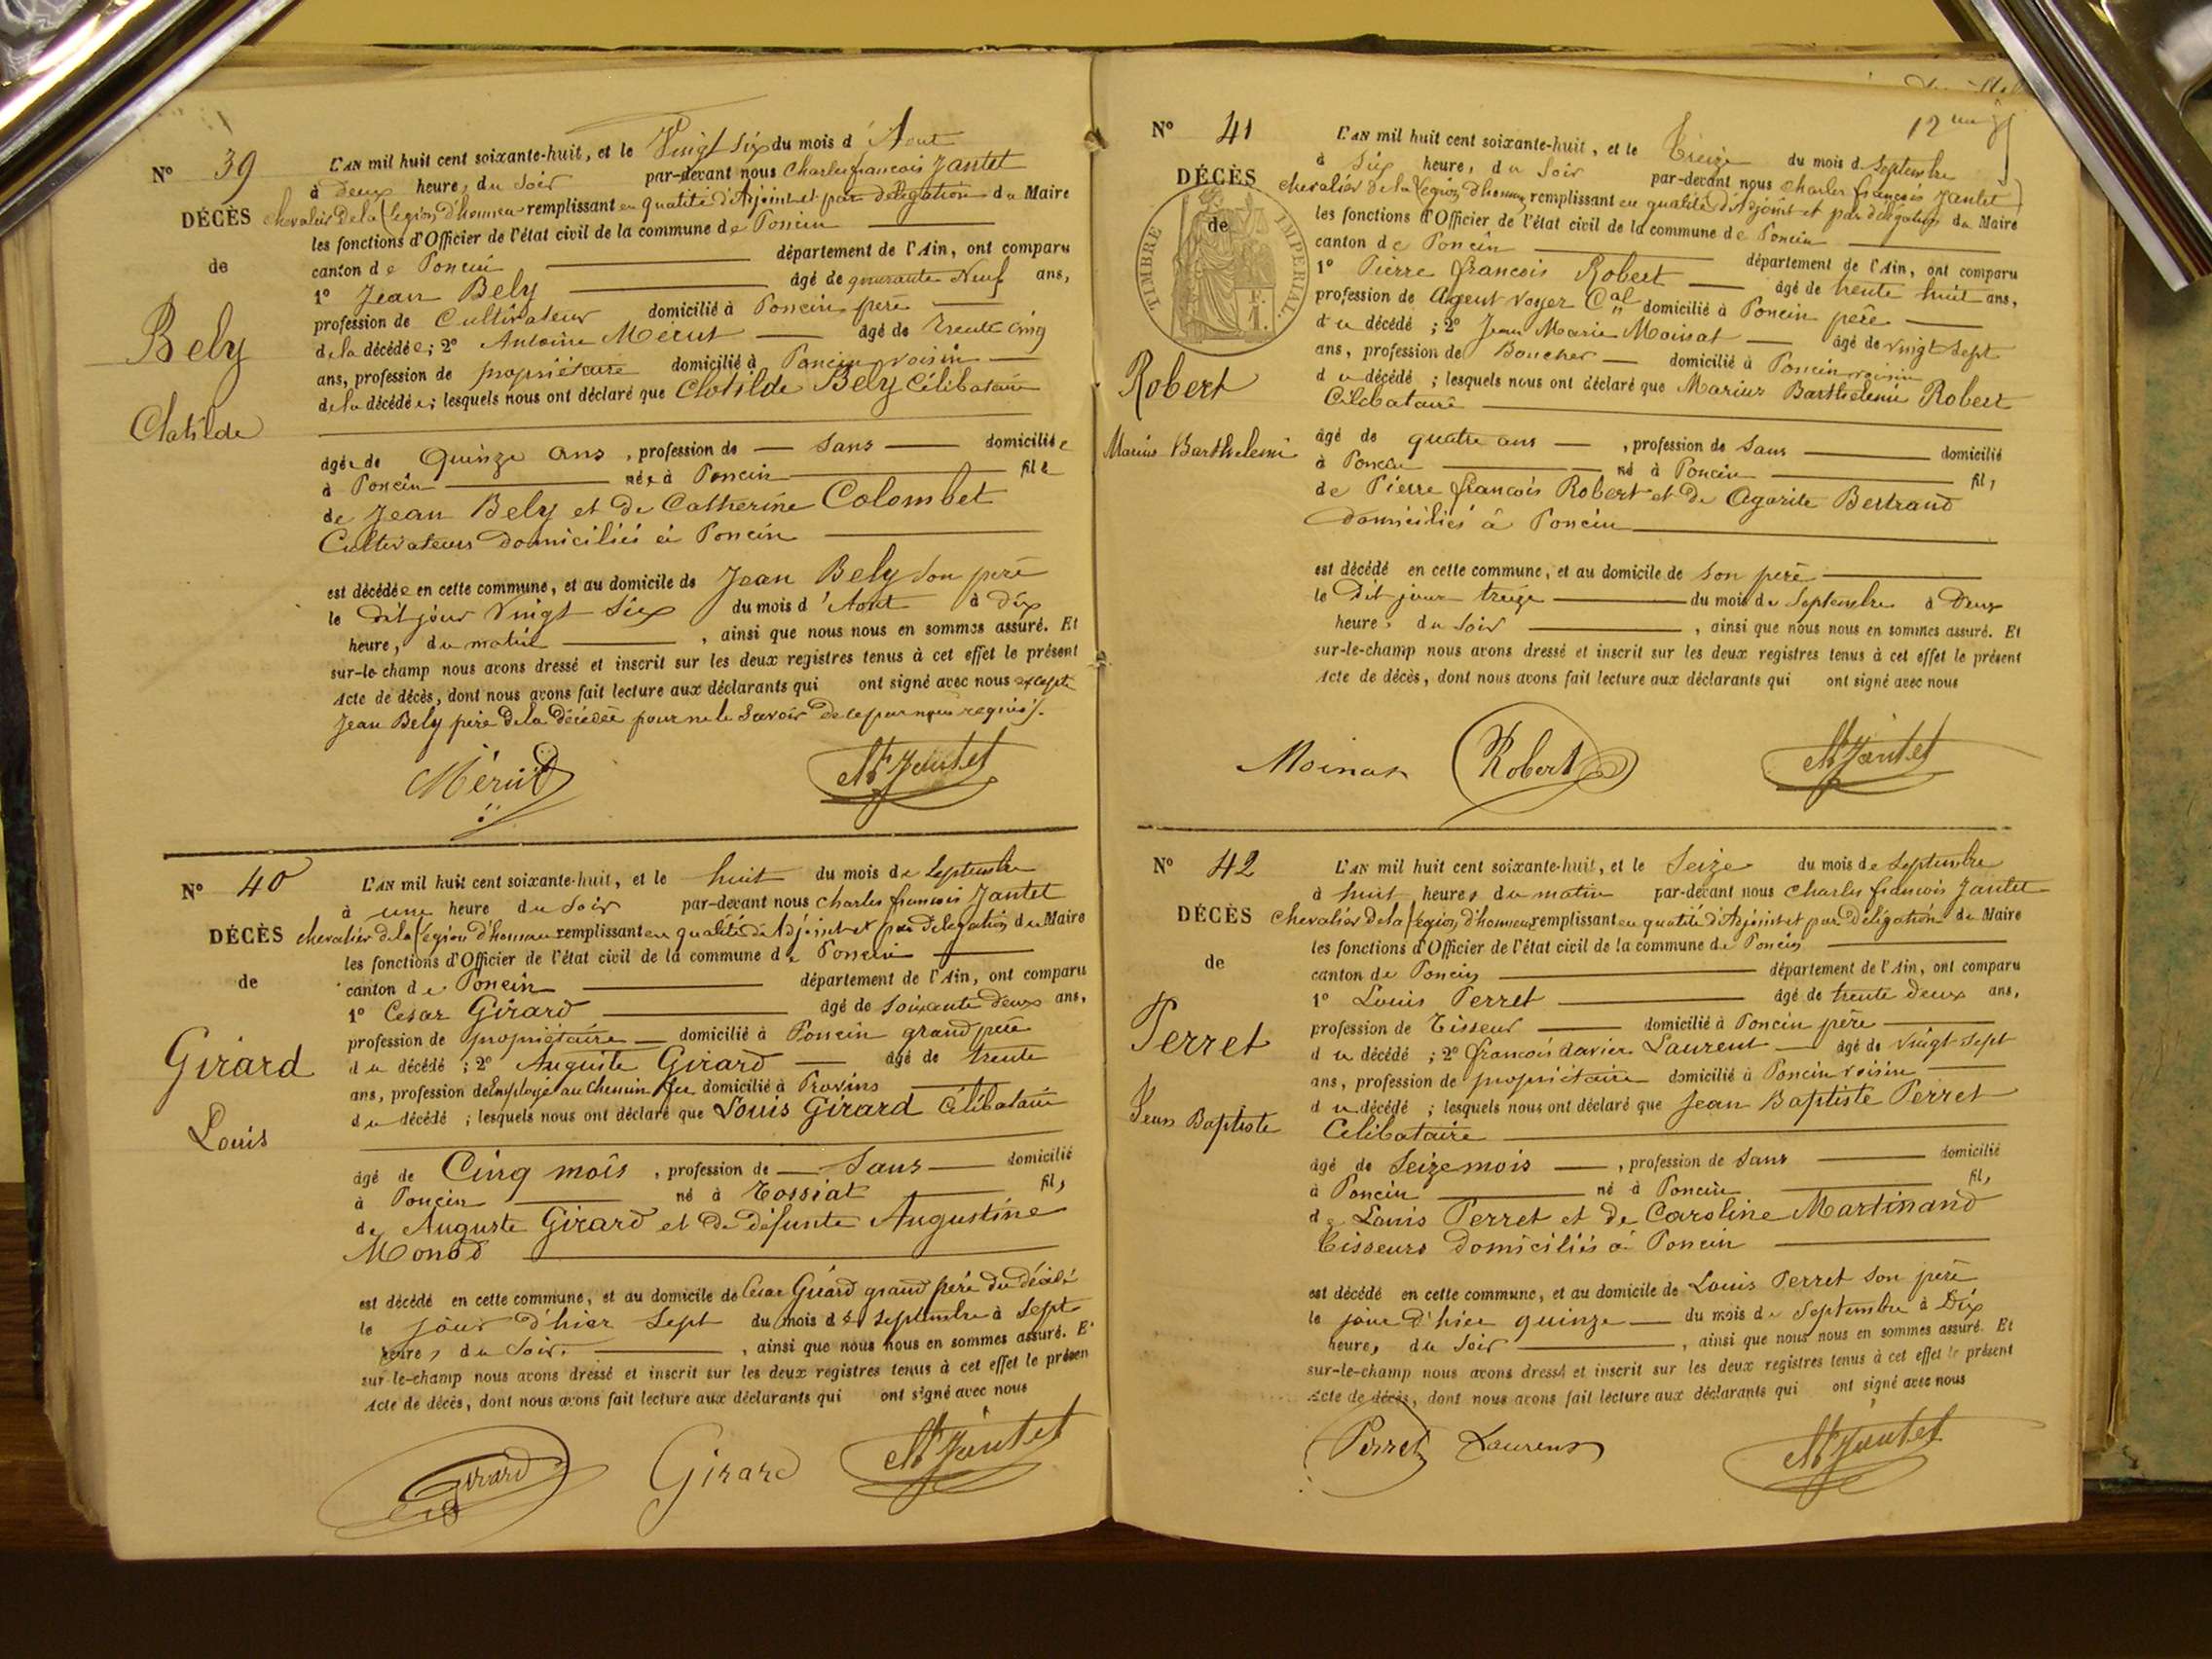 N° 39
DÉCÈS
de
Bely
Clotilde
L'AN mil huit cent soixante-huit, et le Vingt Six du mois d'Aout
à deux heure, du Soir par-devant nous Charles francois Jantet
chevalier de la Légion d'honneur remplissant en qualité d'Adjoint et par délégation du Maire
les fonctions d'Officier de l'état civil de la commune de Poncin
canton de Poncin département de l'Ain, ont comparu
1° Jean Bely âgé de quarante Neuf ans,
profession de Cultivateur domicilié à Poncin père
de la décédée; 2° Antoine Mérut âgé de trente cinq
ans, profession de propriétaire domicilié à Poncin voisin
de la décédée; lesquels nous ont déclaré que Clotilde Bely Célibataire
âgée de Quinze ans, profession de sans domiciliée
à Poncin née à Poncin fille
de Jean Bely et de Catherine Colombet
Cultivateurs domiciliés à Poncin
est décédée en cette commune, et au domicile de Jean Bely Son père
le dit jour Vingt Six du mois d'Aout à dix
heure, du matin, ainsi que nous nous en sommes assuré. Et
sur-le-champ nous avons dressé et inscrit sur les deux registres tenus à cet effet le présent
Acte de décès, dont nous avons fait lecture aux déclarants qui ont signé avec nous excepté
Jean Bely père de la décédée pour ne le Savoir de ce par nous requis /.
Mérut Ch Jantet
N° 40
DÉCÈS
de
Girard
Louis
L'AN mil huit cent soixante-huit, et le huit du mois de Septembre
à une heure du Soir par-devant nous Charles francois Jantet
chevalier de la Légion d'honneur remplissant en qualité d'Adjoint et par délégation du Maire
les fonctions d'Officier de l'état civil de la commune de Poncin
canton de Poncin département de l'Ain, ont comparu
1° César Girard âgé de Soixante deux ans,
profession de propriétaire domicilié à Poncin grand père
du décédé; 2° Auguste Girard âgé de trente
ans, profession de Employé au Chemin fer domicilié à Provins
du décédé; lesquels nous ont déclaré que Louis Girard Célibataire
âgé de Cinq mois, profession de Sans domicilié
à Poncin né à Tossiat fils
de Auguste Girard et de défunte Augustine
Monod
est décédé en cette commune, et au domicile de César Girard grand père du décédé
le jour d'hier Sept du mois de Septembre à Sept
heures du Soir, ainsi que nous nous en sommes assuré. E
sur-le-champ nous avons dressé et inscrit sur les deux registres tenus à cet effet le présen
Acte de décès, dont nous avons fait lecture aux déclarants qui ont signé avec nous
Girard Girard Ch Jantet
12
N° 41
DÉCÈS
de
TIMBRE IMPERIAL
F. 1.
Robert
Marius Barthelemi
L'AN mil huit cent soixante-huit, et le Treize du mois de Septembre
à Six heure, du Soir par-devant nous Charles francois Jantet
chevalier de la Légion d'honneur remplissant en qualité d'Adjoint et par délégation du Maire
les fonctions d'Officier de l'état civil de la commune de Poncin
canton de Poncin département de l'Ain, ont comparu
1° Pierre francois Robert âgé de trente huit ans,
profession de Agent voyer Cal domicilié à Poncin père
du décédé; 2° Jean Marie Moinat âgé de vingt sept
ans, profession de Boucher domicilié à Poncin voisin
du décédé; lesquels nous ont déclaré que Marius Barthelemi Robert
Célibataire
âgé de quatre ans, profession de Sans domicilié
à Poncin né à Poncin fils
de Pierre francois Robert et de Agarite Bertrand
domiciliés à Poncin
est décédé en cette commune, et au domicile de son père
le dit jour treize du mois de Septembre à Deux
heure, du Soir, ainsi que nous nous en sommes assuré. Et
sur-le-champ nous avons dressé et inscrit sur les deux registres tenus à cet effet le présent
Acte de décès, dont nous avons fait lecture aux déclarants qui ont signé avec nous
Moinat Robert Ch Jantet
N° 42
DÉCÈS
de
Perret
Jean Baptiste
L'AN mil huit cent soixante-huit, et le Seize du mois de Septembre
à huit heures du matin par-devant nous Charles francois Jantet
Chevalier de la Légion d'honneur remplissant en qualité d'Adjoint et par Délégation du Maire
les fonctions d'Officier de l'état civil de la commune de Poncin
canton de Poncin département de l'Ain, ont comparu
1° Louis Perret âgé de trente deux ans,
profession de Tisseur domicilié à Poncin père
du décédé; 2° francois davier Laurent âgé de vingt sept
ans, profession de propriétaire domicilié à Poncin voisin
du décédé; lesquels nous ont déclaré que Jean Baptiste Perret
Célibataire
âgé de Seize mois, profession de Sans domicilié
à Poncin né à Poncin fils
de Louis Perret et de Caroline Martinand
Tisseurs domiciliés à Poncin
est décédé en cette commune, et au domicile de Louis Perret son père
le jour d'hier quinze du mois de Septembre à Dix
heure, du Soir, ainsi que nous nous en sommes assuré. Et
sur-le-champ nous avons dressé et inscrit sur les deux registres tenus à cet effet le présent
Acte de décès, dont nous avons fait lecture aux déclarants qui ont signé avec nous
Perret Laurent Ch Jantet